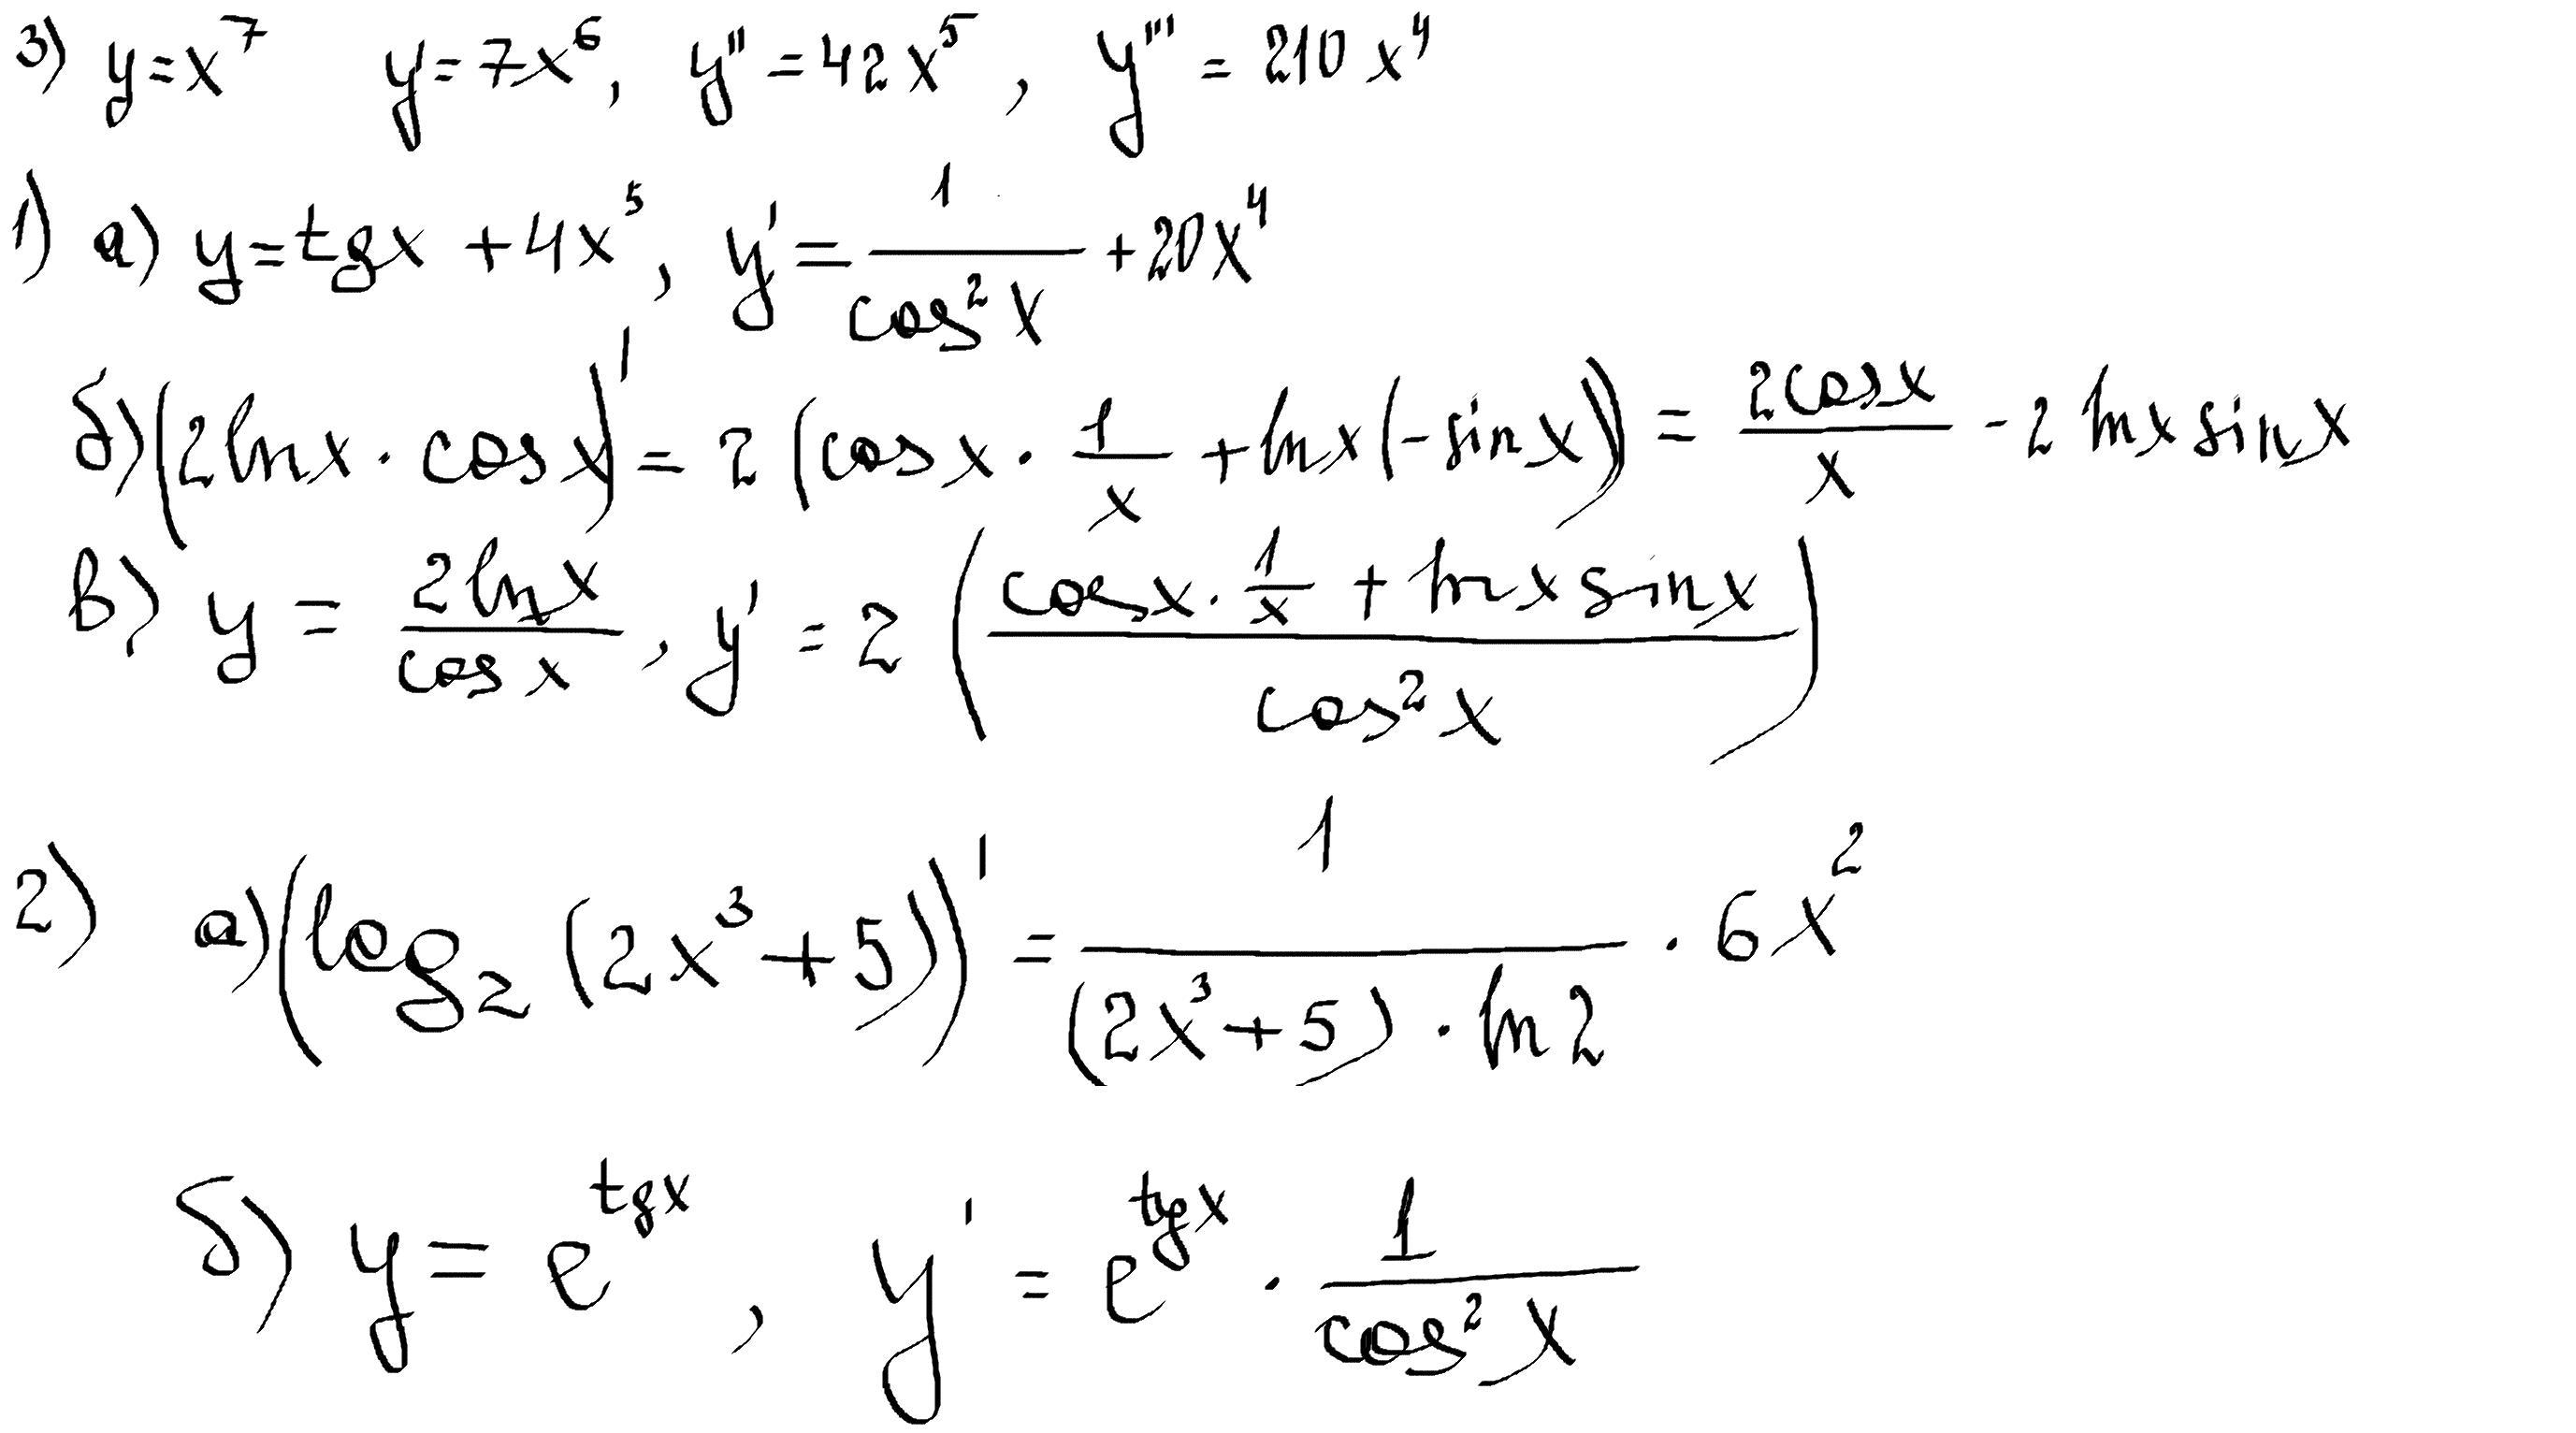 3) y=x⁷ y'=7x⁶, y''=42x⁵, y'''=210x⁴
1) а) y=tgx+4x⁵, y'=1/cos²x+20x⁴
б) (2lnx·cosx)'=2(cosx·1/x+lnx(-sinx))=2cosx/x-2lnxsinx
в) y=2lnx/cosx, y'=2((cosx·1/x+lnxsinx)/cos²x)
2) а) (log₂(2x³+5))'=1/((2x³+5)·ln2)·6x²
б) y=e^(tgx), y'=e^(tgx)·1/cos²x